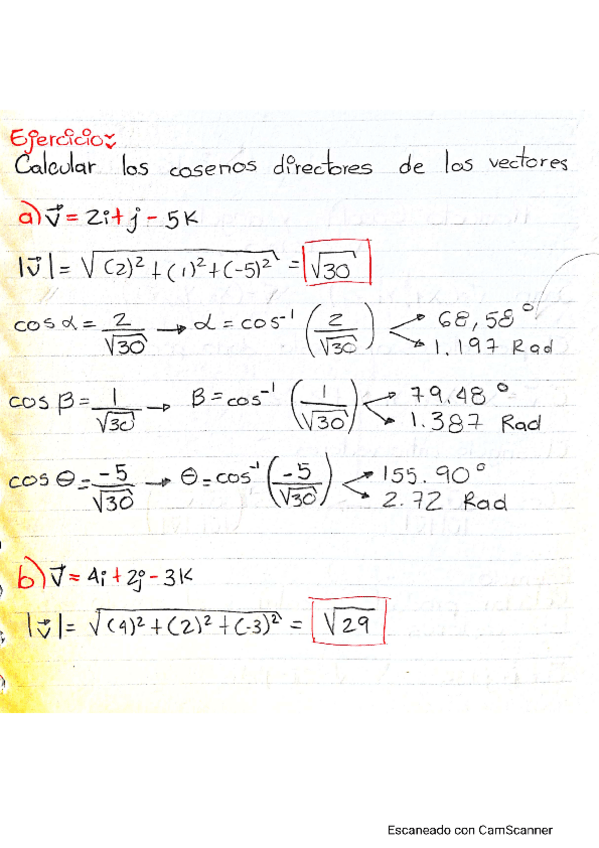 Ejercicio:
Calcular los cosenos directores de los vectores
a) v⃗ = 2i + j - 5k
|v⃗| = √(2)² + (1)² + (-5)² = √30
cos α = 2/√30 → α = cos⁻¹ (2/√30) 68,58°
1.197 Rad
cos β = 1/√30 → β = cos⁻¹ (1/√30) 79.48°
1.387 Rad
cos θ = -5/√30 → θ = cos⁻¹ (-5/√30) 155.90°
2.72 Rad
b) v⃗ = 4i + 2j - 3k
|v⃗| = √(4)² + (2)² + (-3)² = √29
Escaneado con CamScanner